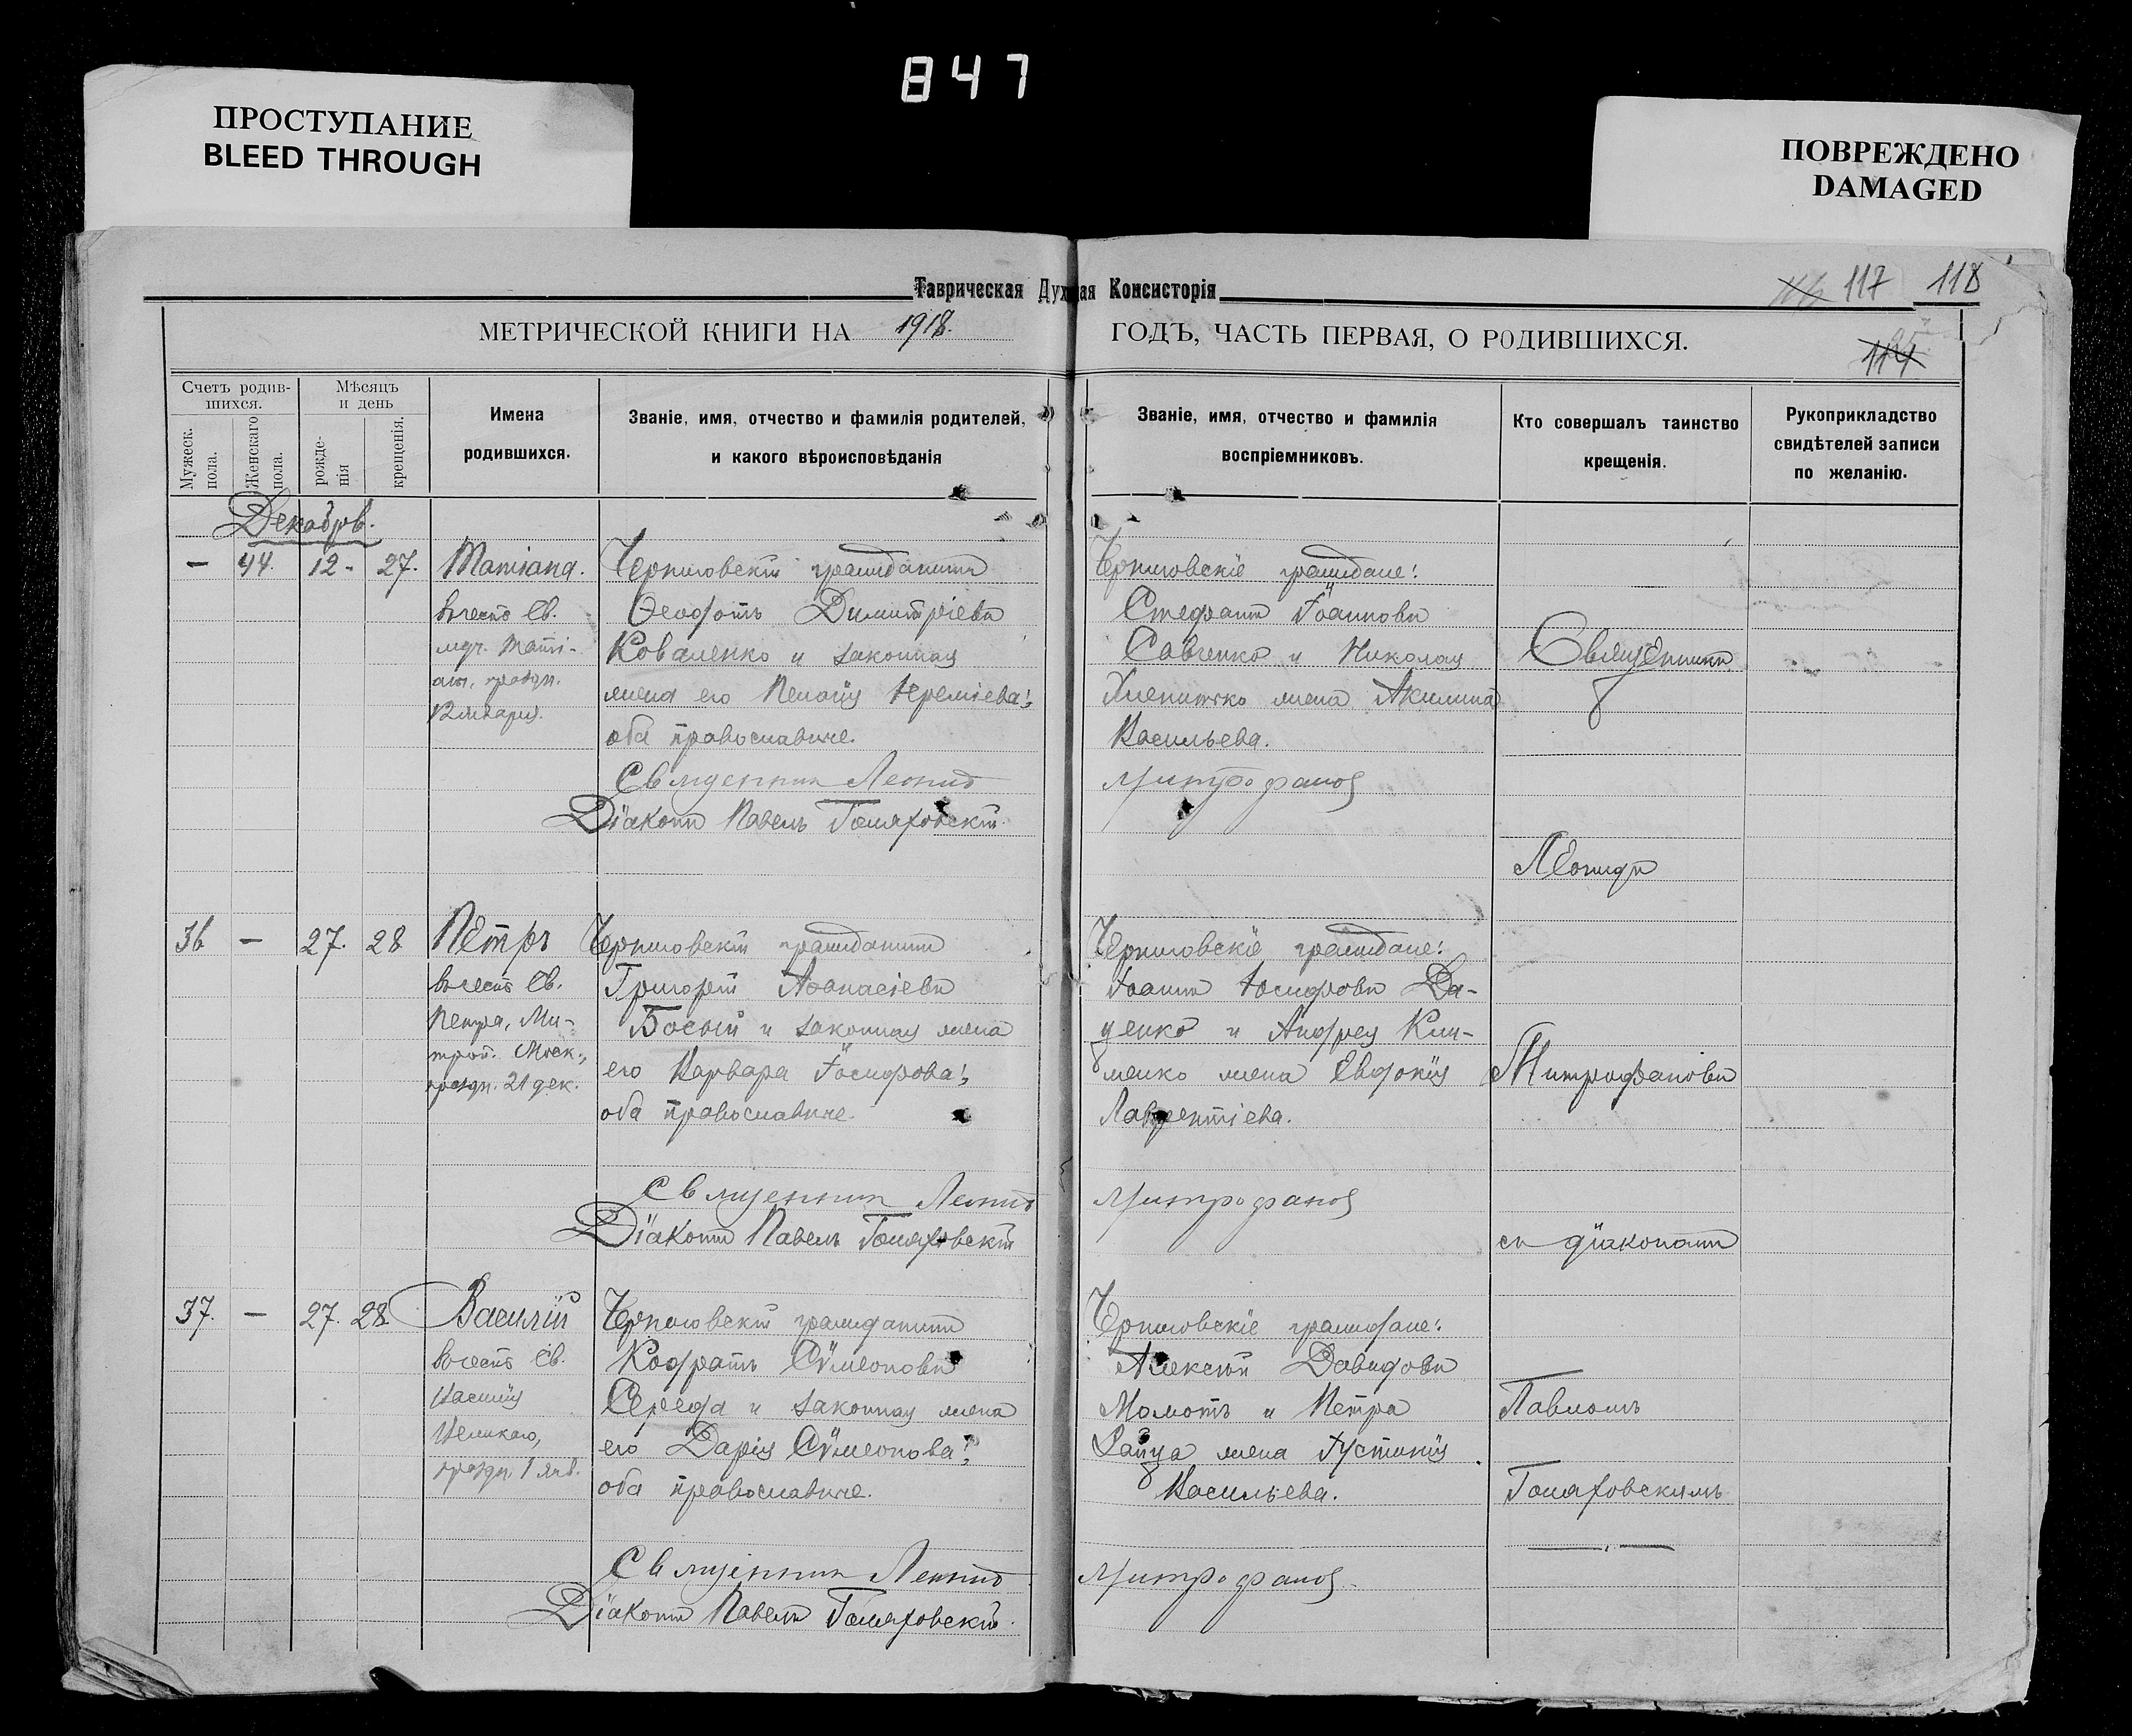 847
ПРОСТУПАНИЕ
BLEED THROUGH
ПОВРЕЖДЕНО
DAMAGED
Таврическая Дух ая Консисторія
117 118
МЕТРИЧЕСКОЙ КНИГИ НА 1918. ГОДЪ, ЧАСТЬ ПЕРВАЯ, О РОДИВШИХСЯ.
114
Счетъ родив-
шихся.
Мужеск.
пола.
Женскаго
пола.
Мѣсяцъ
и день
рожде-
нія
крещенія.
Имена
родившихся.
Званіе, имя, отчество и фамилія родителей,
и какого вѣроисповѣданія
Званіе, имя, отчество и фамилія
воспріемниковъ.
Кто совершалъ таинство
крещенія.
Рукоприкладство
свидѣтелей записи
по желанію.
Декабрь.
— 44. 12 - 27.
Татіана.
въ честь Св.
муч. Таті-
аны, праздн.
12 января.
Черниговскій гражданинъ
Ѳеодотъ Димитріевъ
Коваленко и законная
жена его Пелагія Іереміева;
оба православные.
Священникъ Леонид
Діаконъ Павелъ Голяховскій.
Черниговскіе граждане:
Стефанъ Іоанновъ
Савченко и Николая
жена Акилина
Васильева.
Митрофанов
Священникъ
Леонидъ
36 — 27. 28
Петръ
въ честь Св.
Петра, Ми-
троп. Моск.,
праздн. 21 дек.
Черниговскій гражданинъ
Григорій Аѳанасіевъ
Босый и законная жена
его Варвара Іосифова;
оба православные.
Священникъ Леонид
Діаконъ Павелъ Голяховскій
Черниговскіе граждане:
Іоаннъ Іосифовъ Да-
ценко и Андрея Кли-
менко жена Евдокія
Лаврентіева.
Митрофанов
Митрофановъ
съ діакономъ
37. — 27. 28
Василій
въ честь Св.
Василія
Великаго,
праздн. 1 янв.
Черниговскій гражданинъ
Кодратъ Сѵмеоновъ
Середа и законная жена
его Дарія Сѵмеонова;
оба православные.
Священникъ Леонид
Діаконъ Павелъ Голяховскій.
Черниговскіе граждане:
Алексѣй Давидовъ
Момотъ и Петра
Зайца жена Іустинія
Васильева.
Митрофанов
Павломъ
Голяховскимъ